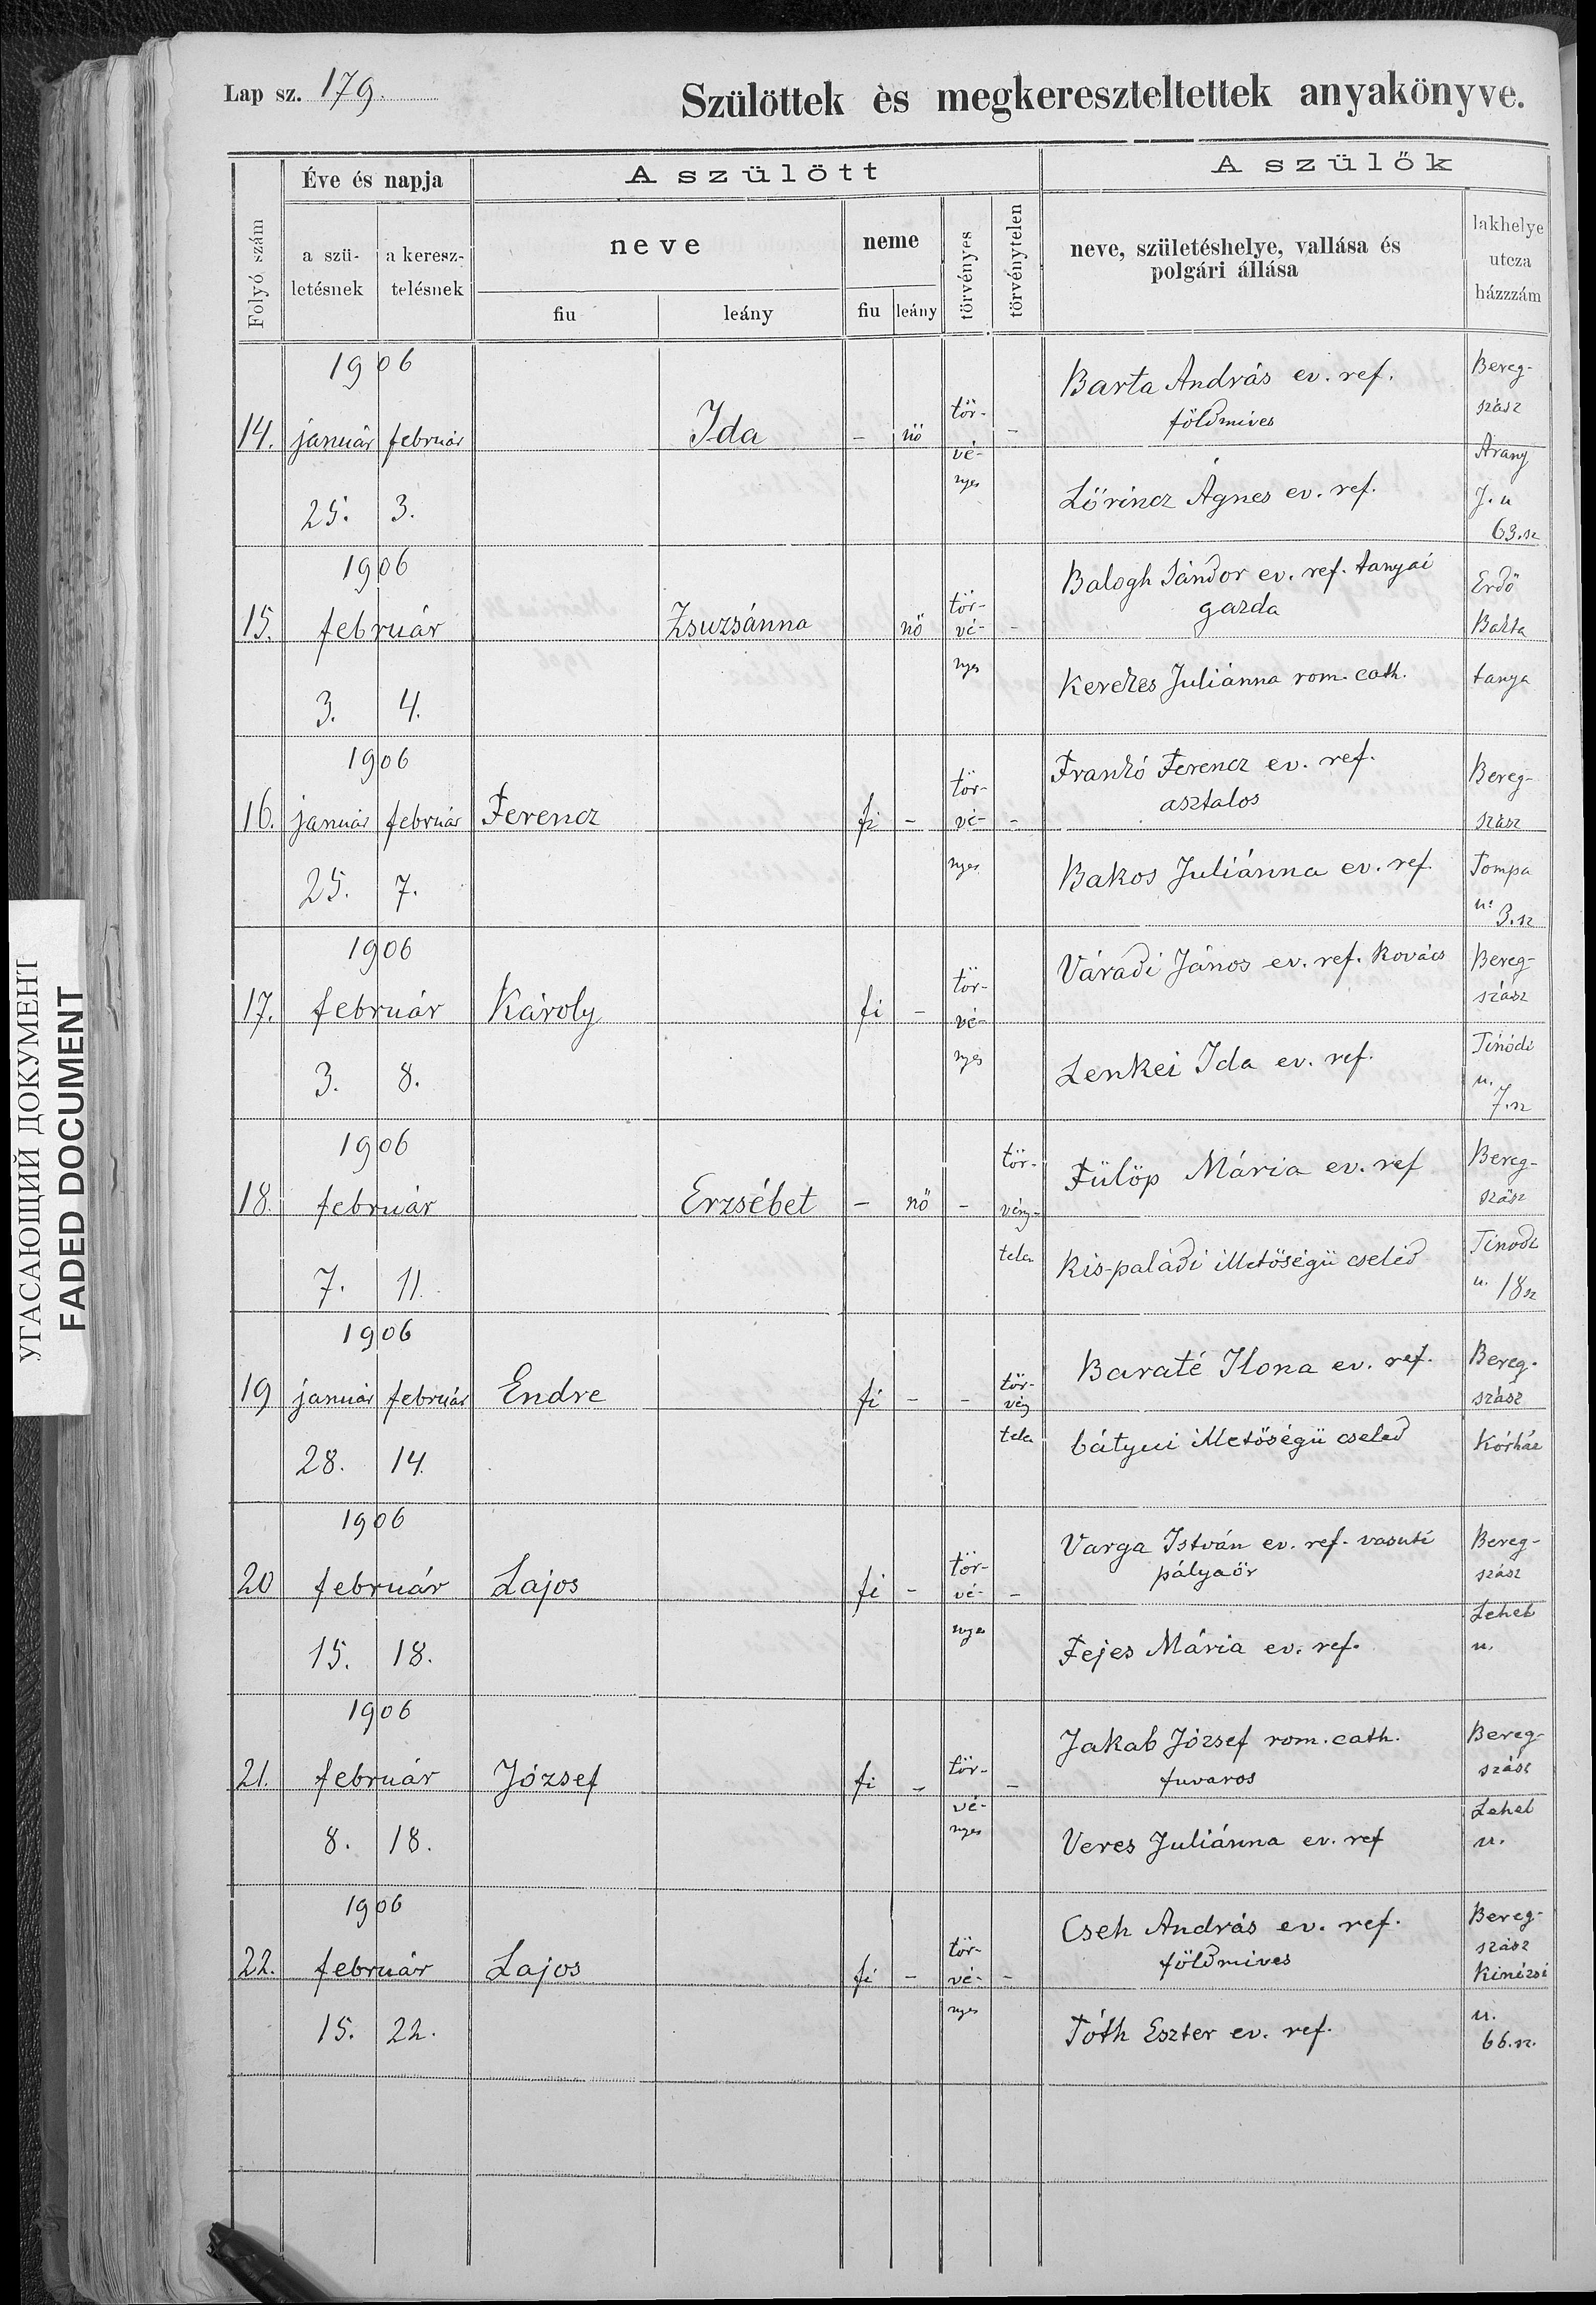 Lap sz. 179.
Szülöttek ès megkereszteltettek anyakönyve.
Folyó szám
Éve és napja
a szü-
letésnek
a keresz-
telésnek
A szülött
neve
fiu
leány
neme
fiu
leány
törvényes
törvénytelen
A szülők
neve, születéshelye, vallása és
polgári állása
lakhelye
utcza
házzzám
1906
14. január február Ida - nő tör- -
vé-
nyes
25. 3.
Barta András ev. ref.
földmives
Lőrincz Ágnes ev. ref.
Bereg-
szász
Arany
J. u
63. sz
1906
15. február Zsuzsánna nő tör- -
vé-
nyes
3. 4.
Balogh Sándor ev. ref. tanyai
gazda
Kerekes Juliánna rom. cath.
Erdő
Barta
tanya
1906
16. január február Ferencz fi - tör- -
vé-
nyes
25. 7.
Frankó Ferencz ev. ref.
asztalos
Bakos Juliánna ev. ref
Bereg-
szász
Tompa
u. 3. sz
1906
17. február Károly fi - tör-
vé-
nyes
3. 8.
Váradi János ev. ref. kovács
Lenkei Ida ev. ref.
Bereg-
szász
Tinódi
u.
7. sz
1906
18. február Erzsébet - nő - tör-
vény-
telen
7. 11.
Fülöp Mária ev. ref
Kis-paládi illetőségü cseléd
Bereg-
szász
Tinodi
u. 18 sz
1906
19 január február Endre fi - - tör-
vény
telen
28. 14.
Baraté Ilona ev. ref.
bátyui illetőségü cseléd
Bereg-
szász
Kórház
1906
20 február Lajos fi - tör- -
vé-
nyes
15. 18.
Varga István ev. ref. vasuti
pályaőr
Fejes Mária ev. ref.
Bereg-
szász
Lehel
u.
1906
21. február József fi - tör- -
vé-
nyes
8. 18.
Jakab József rom. cath.
fuvaros
Veres Juliánna ev. ref
Bereg-
szász
Lehel
u.
1906
22. február Lajos fi - tör- -
vé-
nyes
15. 22.
Cseh András ev. ref.
földmives
Tóth Eszter ev. ref.
Bereg-
szász
Kinizsi
u.
66. sz.
УГАСАЮЩИЙ ДОКУМЕНТ
FADED DOCUMENT